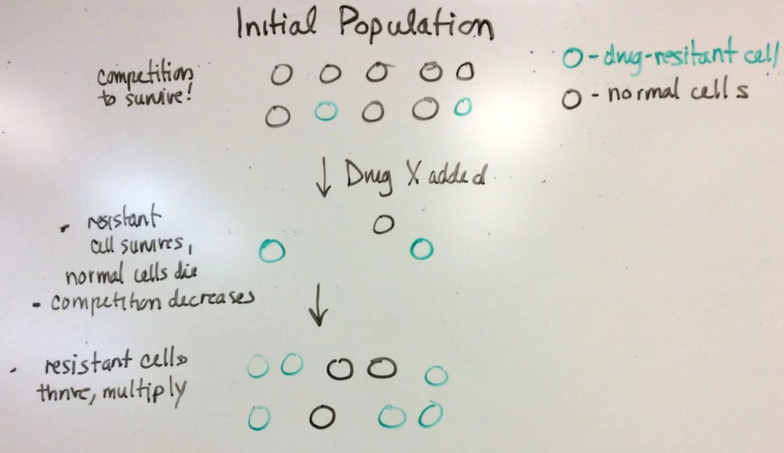 Initial Population
competition
to survive!
O - drug-resitant cell
O - normal cells
↓ Drug X added
- resistant
cell survives,
normal cells die
- competition decreases
- resistant cells
thrive, multiply